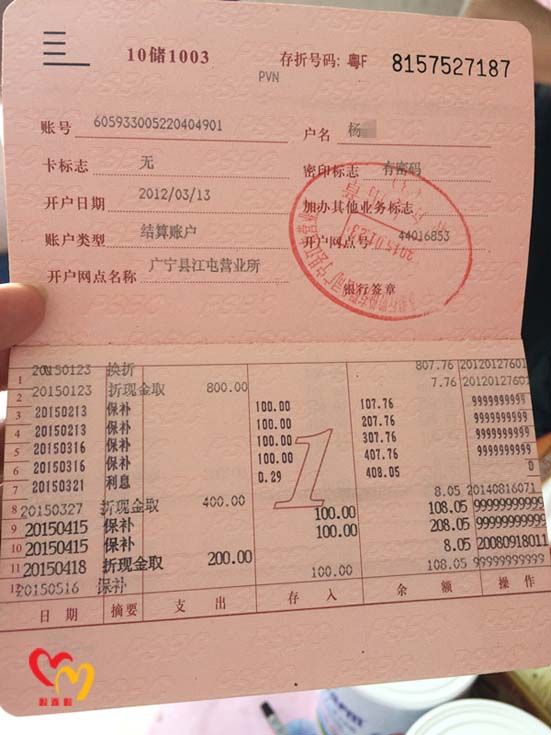 10储1003 存折号码: 粤F 8157527187
PVN
账号 605933005220404901 户名 杨
卡标志 无 密印标志 有密码
开户日期 2012/03/13 加办其他业务标志
账户类型 结算账户 开户网点号 44016853
开户网点名称 广宁县江屯营业所 银行签章
20150123
1 20150123 换折 807.76 20120127601
2 20150123 折现金取 800.00 7.76 20120127601
3 20150213 保补 100.00 107.76 9999999999
4 20150213 保补 100.00 207.76 9999999999
5 20150316 保补 100.00 307.76 9999999999
6 20150316 保补 100.00 407.76 9999999999
7 20150321 利息 0.29 408.05 0
8 20150327 折现金取 400.00 8.05 20140816071
9 20150415 保补 100.00 108.05 99999999999
10 20150415 保补 100.00 208.05 99999999999
11 20150418 折现金取 200.00 8.05 20080918011
12 20150516 保补 100.00 108.05 99999999999
1
日期 摘要 支出 存入 余额 操作